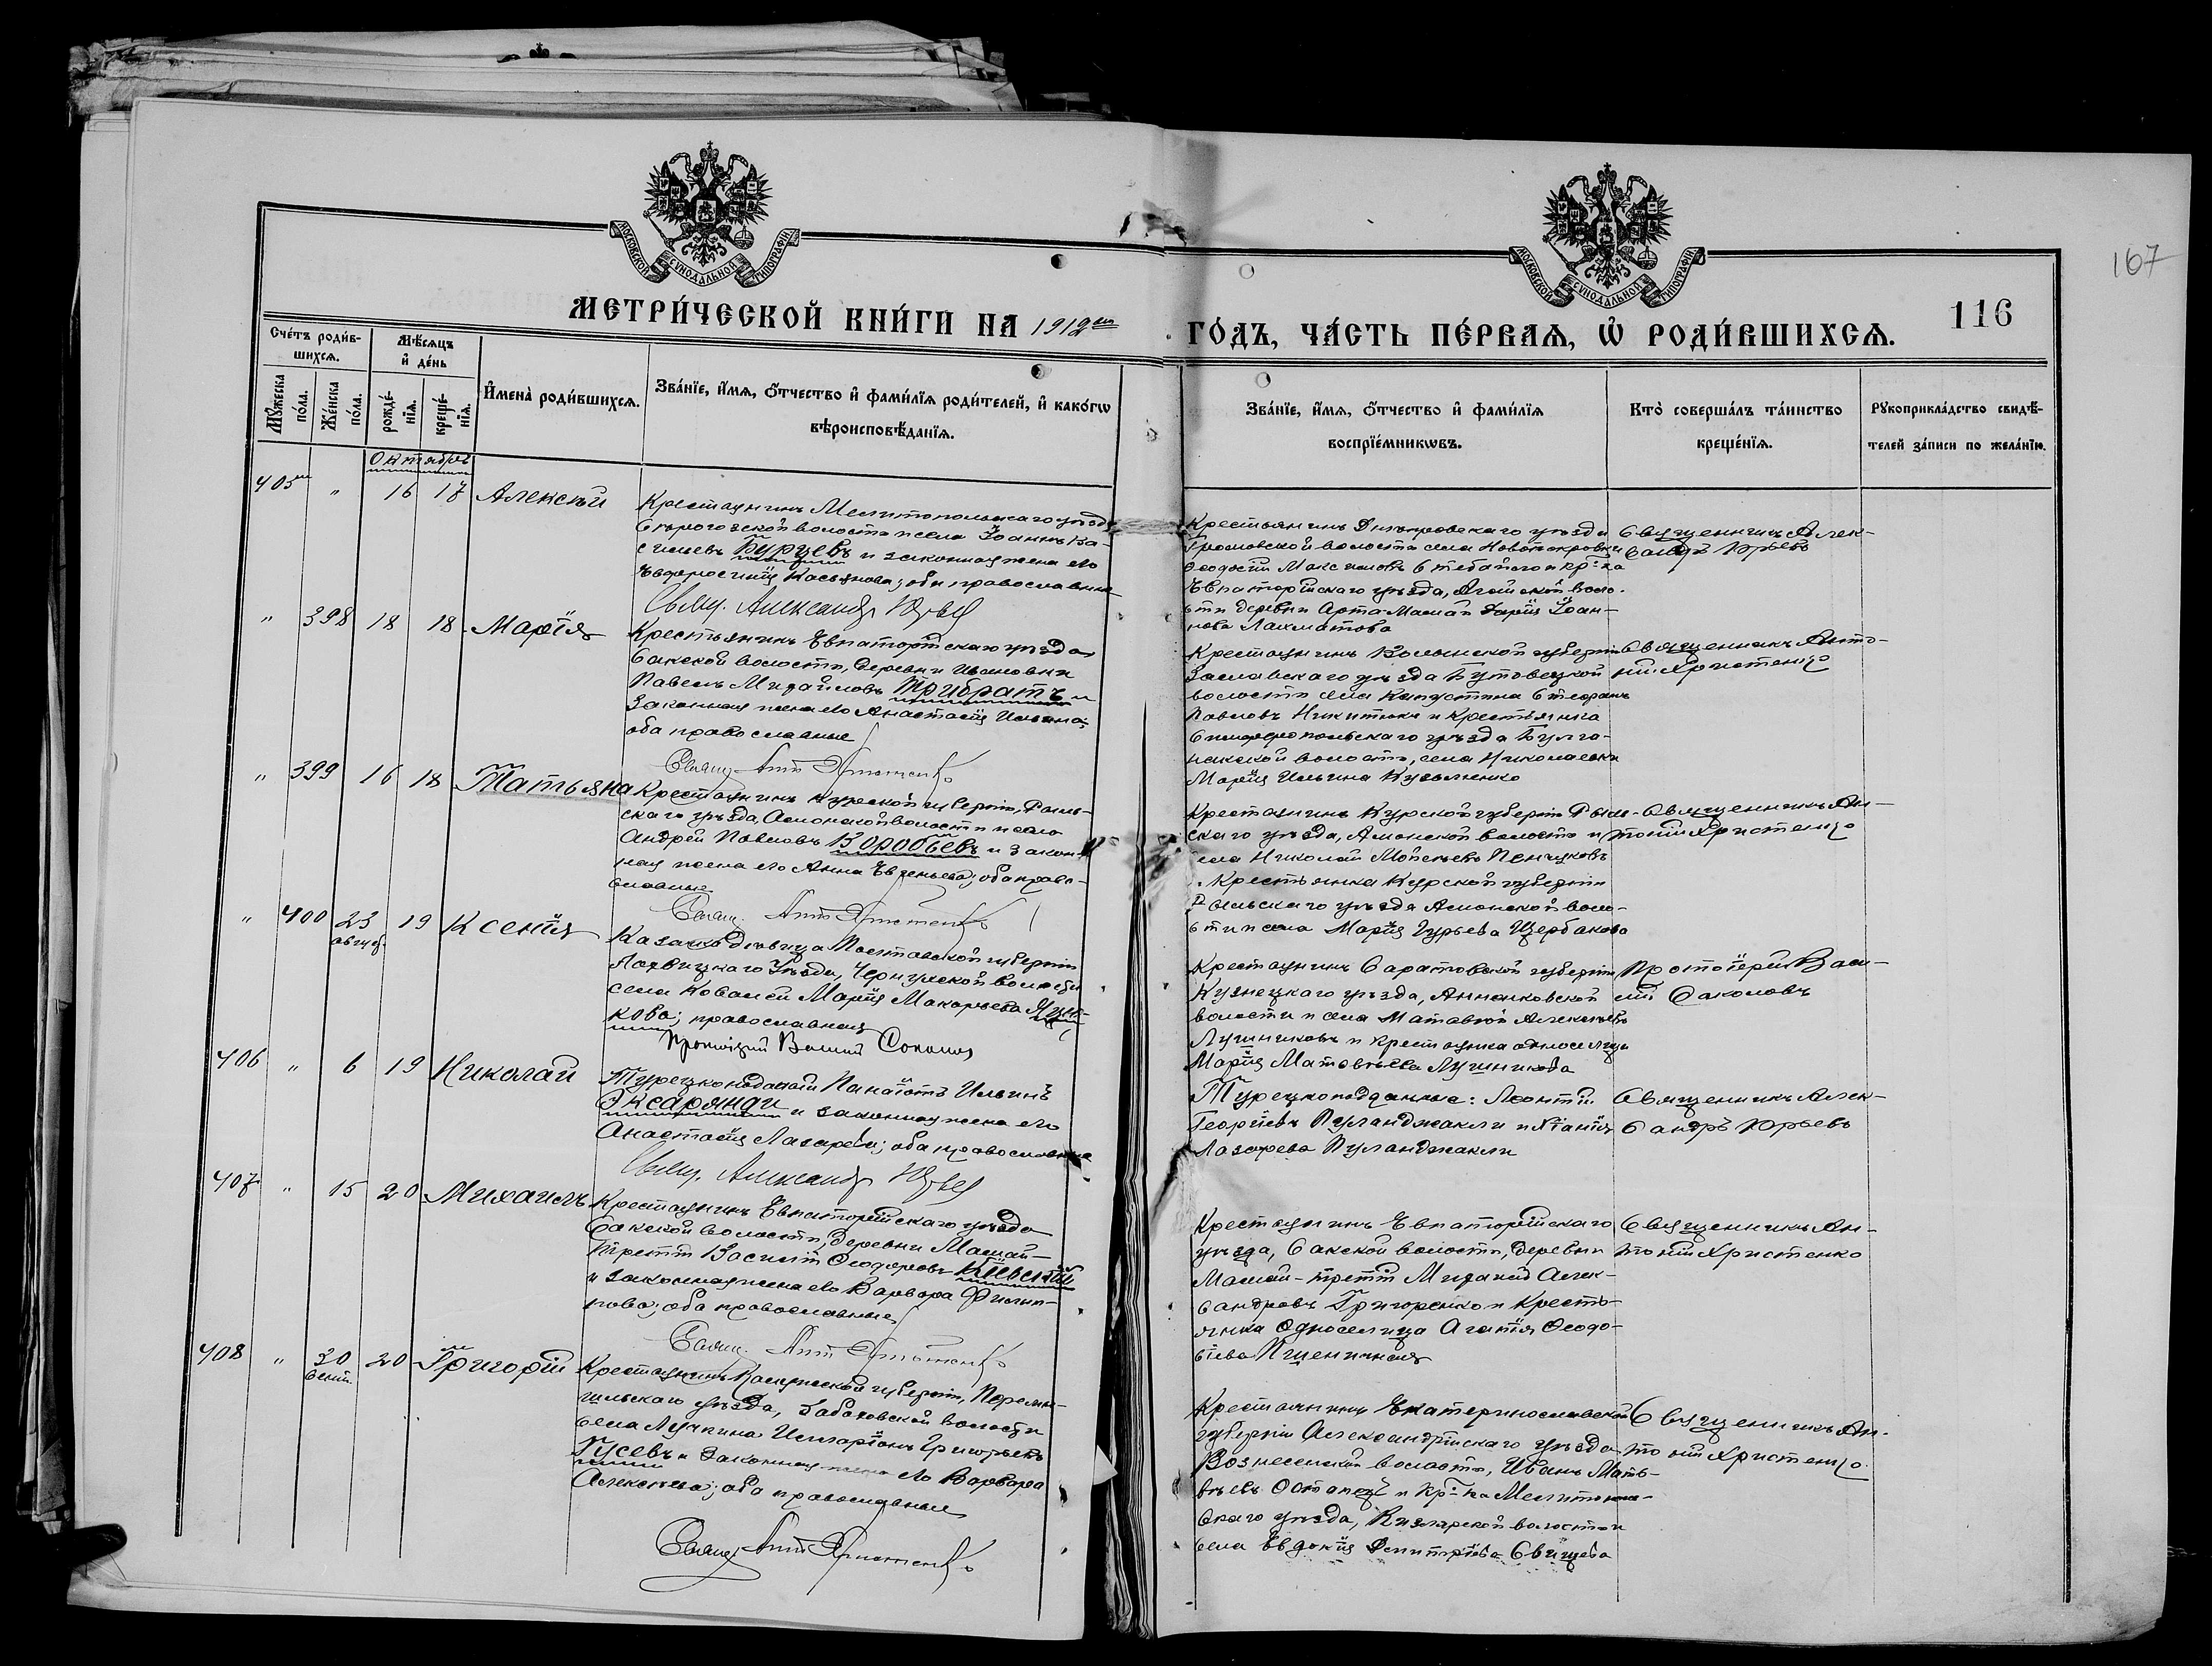 167
МОСКОВСКОЙ СѴНОДАЛЬНОЙ ТИПОГРАФІИ
МОСКОВСКОЙ СѴНОДАЛЬНОЙ ТИПОГРАФІИ
116
МЕТРИ́ЧЕСКОЙ КНИ́ГИ НА 1912
ГО́ДЪ, ЧА́СТЬ ПЕ́РВАѦ, Ѡ РОДИ́ВШИХСѦ.
Сче́тъ роди́в-
шихсѧ.
Мꙋ́жеска
по́ла.
Же́нска
по́ла.
Мѣ́сѧцъ
и҆ де́нь
рожде́-
нїѧ.
креще́-
нїѧ.
И҆мена̀ роди́вшихсѧ.
Зва́нїе, и҆́мѧ, ѻ҆́тчество и҆ фами́лїѧ роди́телей, и҆ како́гѡ
вѣроисповѣ́данїѧ.
Зва́нїе, и҆́мѧ, ѻ҆́тчество и҆ фами́лїѧ
воспрїе́мникѡвъ.
Кто̀ соверша́лъ та́инство
креще́нїѧ.
Рꙋкоприкла́дство свидѣ́-
телей за́писи по жела́нїю.
Октябрь
405 " 16 17 Алексѣй
Крестьянинъ Мелитопольскаго уѣзда
волости и села Іоаннъ Ва-
сильевъ Бурцевъ и законная жена его
Касьянова; оба православные
Свящ. Александр Юрьев
Крестьянинъ Днѣпровскаго уѣзда
Громовской волости села Новопокровки
Ѳеодосій Максимовъ и кр-ка
Евпаторійскаго уѣзда, Агайской воло-
сти деревни Дарія Іоан-
нова Лахматова
Священникъ Алек-
сандръ Юрьевъ
" 398 18 18 Марія
Крестьянинъ Евпаторійскаго уѣзда
Сакской волости, деревни Ивановки
Павелъ Михайловъ Трибратъ и
законная жена его Анастасія Ильина;
оба православные
Свящ. Ант Христенко
Крестьянинъ Волынской губерніи
Заславскаго уѣзда Бутовецкой
волости села Капустина Стефанъ
Павловъ Никитюкъ и крестьянка
Симферопольскаго уѣзда Булга-
накской волости, села Николаевки
Марія Ильина Кузьменко
Священникъ Анто-
ній Христенко
" 399 16 18 Татьяна
Крестьянинъ Курской губерніи, Рыль-
скаго уѣзда, Асмонской волости и села
Андрей Павловъ Воробьевъ и закон-
ная жена его Анна Евгеньева; оба право-
славные
Свящ. Ант Христенко
Крестьянинъ Курской губерніи Рыль-
скаго уѣзда, Амонской волости и
села Николай Моѵсеевъ
Крестьянка Курской губерніи
Рыльскаго уѣзда Амонской воло-
сти и села Марія Гурьева Щербакова
Священникъ Ан-
тоній Христенко
" 400 23 19 Ксенія
август.
Казачка дѣвица Полтавской губерніи
Лохвицкаго уѣзда, Чернухской волости
села Ковалей Марія Макарьева
кова; православная
Протоіерей Василий Соколов
Крестьянинъ Саратовской губерніи
Кузнецкаго уѣзда, Анненковской
волости и села Матвѣй Алексѣевъ
Лушниковъ и крестьянка односелица
Марія Матвѣева Лушникова
Протоіерей Васи-
лій Соколовъ
406 " 6 19 Николай
Турецкоподданный Панаіотъ Ильинъ
Эксарянди и законная жена его
Анастасія Лазарева; оба православные
Свящ. Александр Юрьев
Турецкоподданные: Леонтій
Георгіевъ Пуланджакли и
Лазарева Пуланджакли
Священникъ Алек-
сандръ Юрьевъ
407 " 15 20 Михаилъ
Крестьянинъ Евпаторійскаго уѣзда
Сакской волости, деревни Мамай-
третій Василій Ѳеодоровъ
и законная жена его Варвара Филип-
пова; оба православные
Свящ. Ант Христенко
Крестьянинъ Евпаторійскаго
уѣзда, Сакской волости, деревни
Мамай-третій Михаилъ Алек-
сандровъ Григоренко и кресть-
янка односелица Агаѳія Ѳеодо-
сіева Пшеничная
Священникъ Ан-
тоній Христенко
408 " 30 20 Григорій
сент.
Крестьянинъ Калужской губерніи, Перемы-
шльскаго уѣзда, волости
села Лучкина Иларіонъ Григорьевъ
Гусевъ и законная жена его Варвара
Алексѣева; оба православные
Свящ. Ант Христенко
Крестьянинъ Екатеринославской
губерніи Александрійскаго уѣзда
Вознесенской волости, Иванъ Матѳ-
ѣевъ Остапецъ и кр-ка Мелитополь-
скаго уѣзда, Кизлярской волости и
села Евдокія Димитріева Свищева
Священникъ Ан-
тоній Христенко